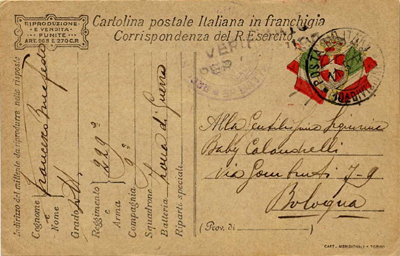 RIPRODUZIONE
E VENDITA
PUNITE
ART. 285 E 270 C.P.
Cartolina postale Italiana in franchigia
Corrispondenza del R. Esercito
VERI
POSTA
Indirizzo del mittente da riprodurre nella risposta
Cognome
e Nome Francesco
Grado
Reggimento 229º
e Arma
Compagnia 9ª
Squadrone
Batteria Zona di Guerra
Riparti speciali
Alla Gentilissima Signorina
Baby Calandrelli
Via Gombruti 7-9
Bologna
(Prov. di)